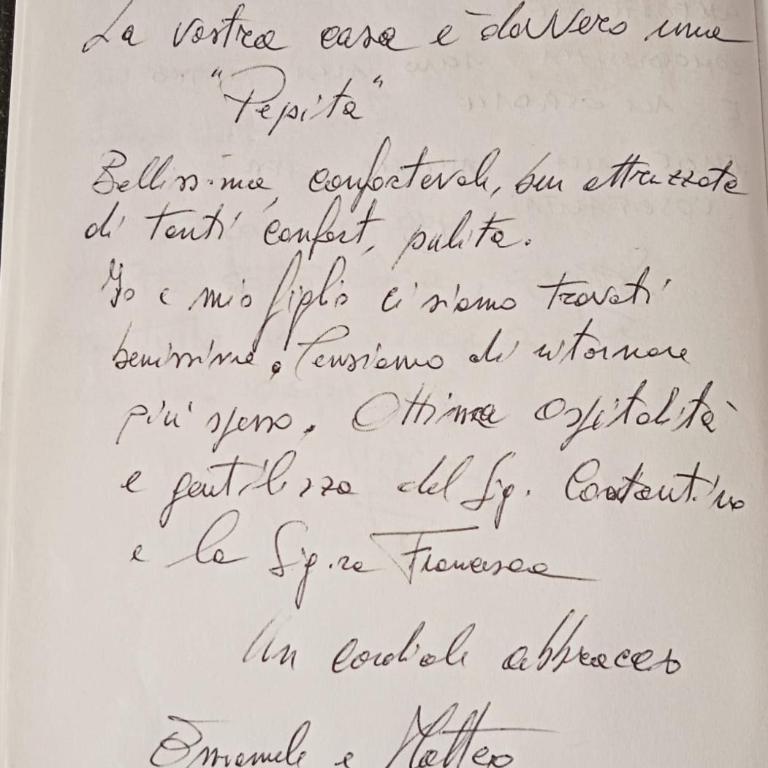 La vostra casa è davvero una
"Pepita"
Bellissima, confortevole, ben attrezzata
di tanti confort, pulita.
Io e mio figlio ci siamo trovati
benissimo. Pensiamo di ritornare
più spesso. Ottima ospitalità
e gentilezza del Sig. Costantino
e la Sig.ra Francesca
Un cordiale abbraccio
Emanuele e Matteo